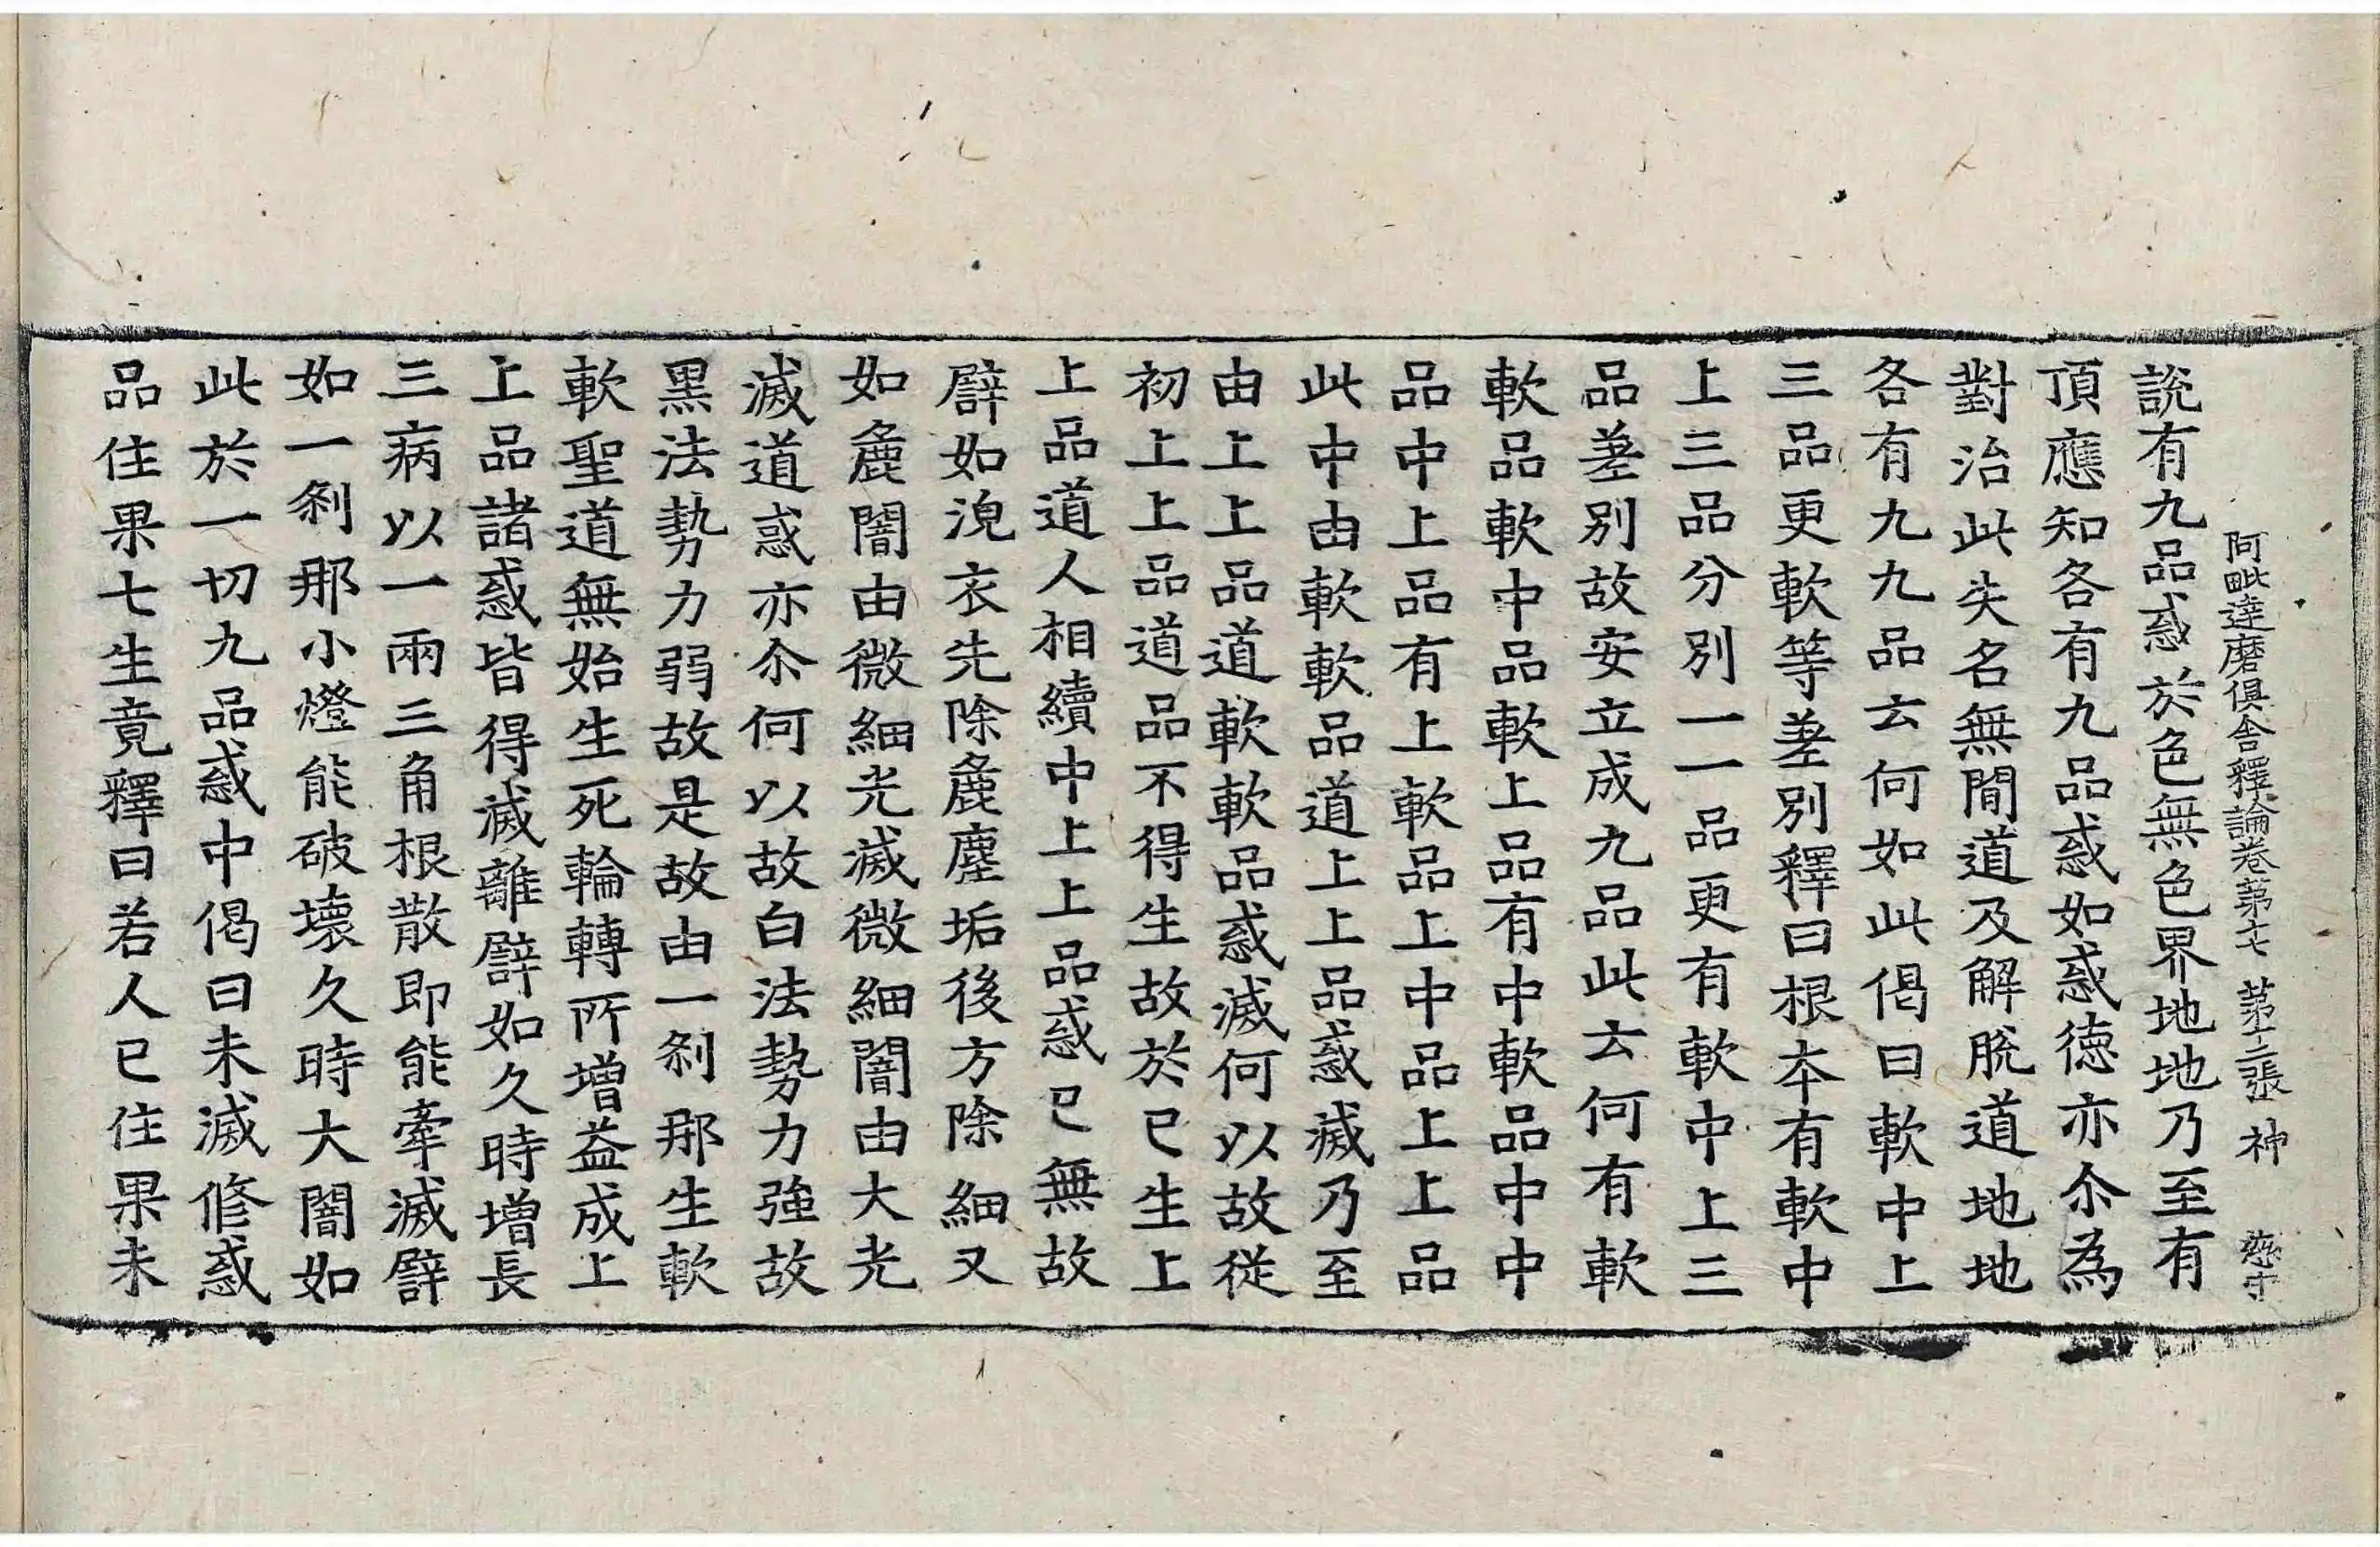 阿毗達磨俱舍釋論卷第十七 第十二張 神
說有九品惑於色無色界地地乃至有
頂應知各有九品惑如惑德亦尒為
對治此失名無間道及解脫道地地
各有九九品云何如此偈曰軟中上
三品更軟等差別釋曰根本有軟中
上三品分別一一品更有軟中上三
品差別故安立成九品此云何有軟
軟品軟中品軟上品有中軟品中中
品中上品有上軟品上中品上上品
此中由軟軟品道上上品惑滅乃至
由上上品道軟軟品惑滅何以故從
初上上品道品不得生故於已生上
上品道人相續中上上品惑已無故
譬如浣衣先除麁塵垢後方除細又
如麁闇由微細光滅微細闇由大光
滅道惑亦尒何以故白法勢力強故
黑法勢力弱故是故由一剎那生軟
軟聖道無始生死輪轉所增益成上
上品諸惑皆得滅離譬如久時增長
三病以一兩三角根散即能牽滅譬
如一剎那小燈能破壞久時大闇如
此於一切九品惑中偈曰未滅修惑
品住果七生竟釋曰若人已住果未